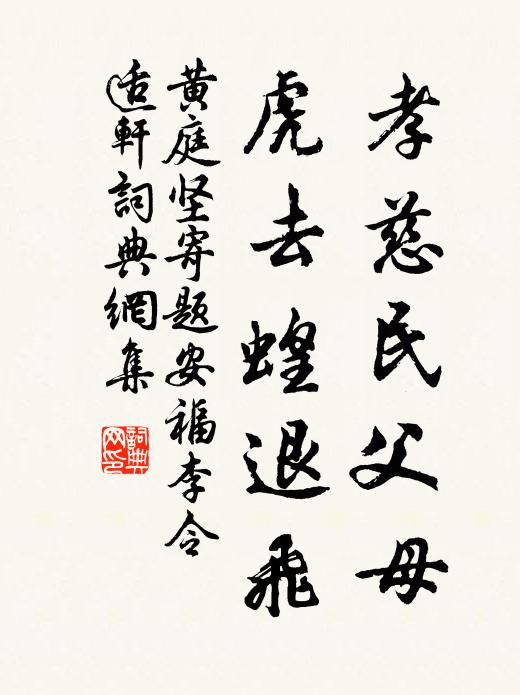 孝慈民父母
虎去蝗退飛
黄庭坚寄題安福李令
适軒詞典網集
詞典网印